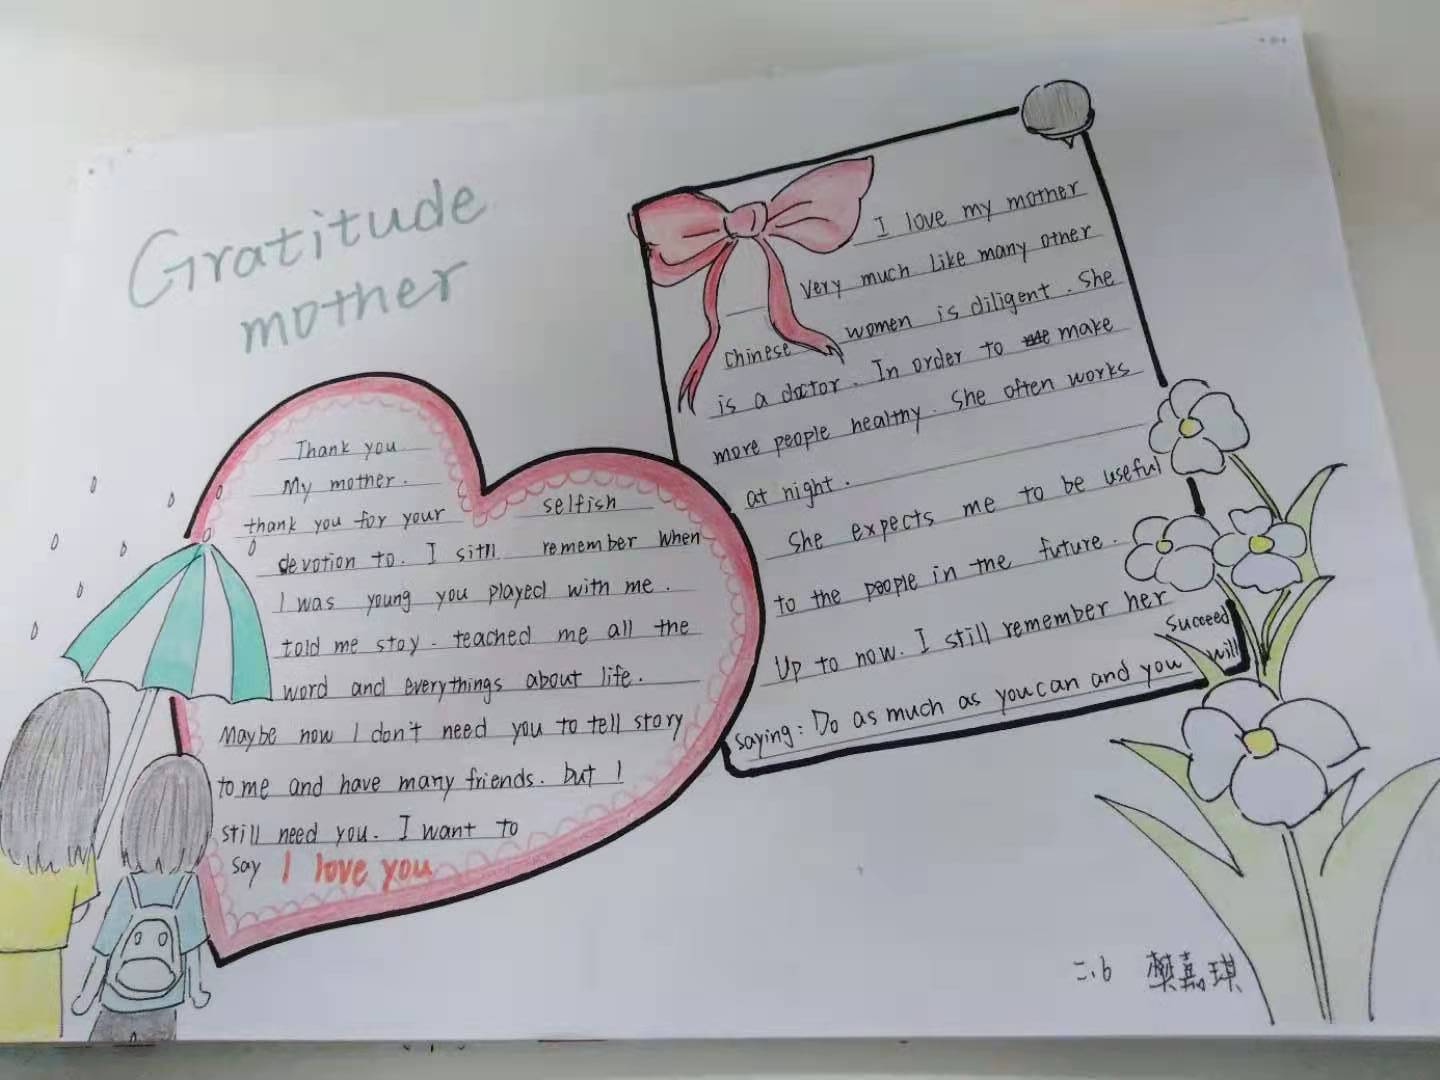 Gratitude
mother
Thank you
My mother.
thank you for your selfish
devotion to. I sitll remember when
I was young you played with me.
told me stoy. teached me all the
word and everythings about life.
Maybe now I don't need you to tell story
to me and have many friends. but I
still need you. I want to
say I love you
I love my mother
very much like many other
Chinese women is diligent. She
is a doctor. In order to make
more people healthy. She often works
at night.
She expects me to be useful
to the people in the future.
Up to now. I still remember her
saying: Do as much as you can and you will
succeed
二.6 樊嘉琪